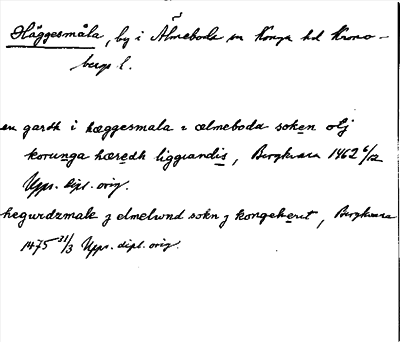 Häggesmåla, by i Älmeboda sn Konga hd Krono-
bergs l.
en gardh i hæggesmala i ælmeboda soken olj
korunga hæredh liggiandis, Bergkvara 1462 6/12
Upps. dipl. orig.
hegurdzmale j elmelwnd sokn j kongeherit, Bergkvara
1475 31/3 Upps. dipl. orig.